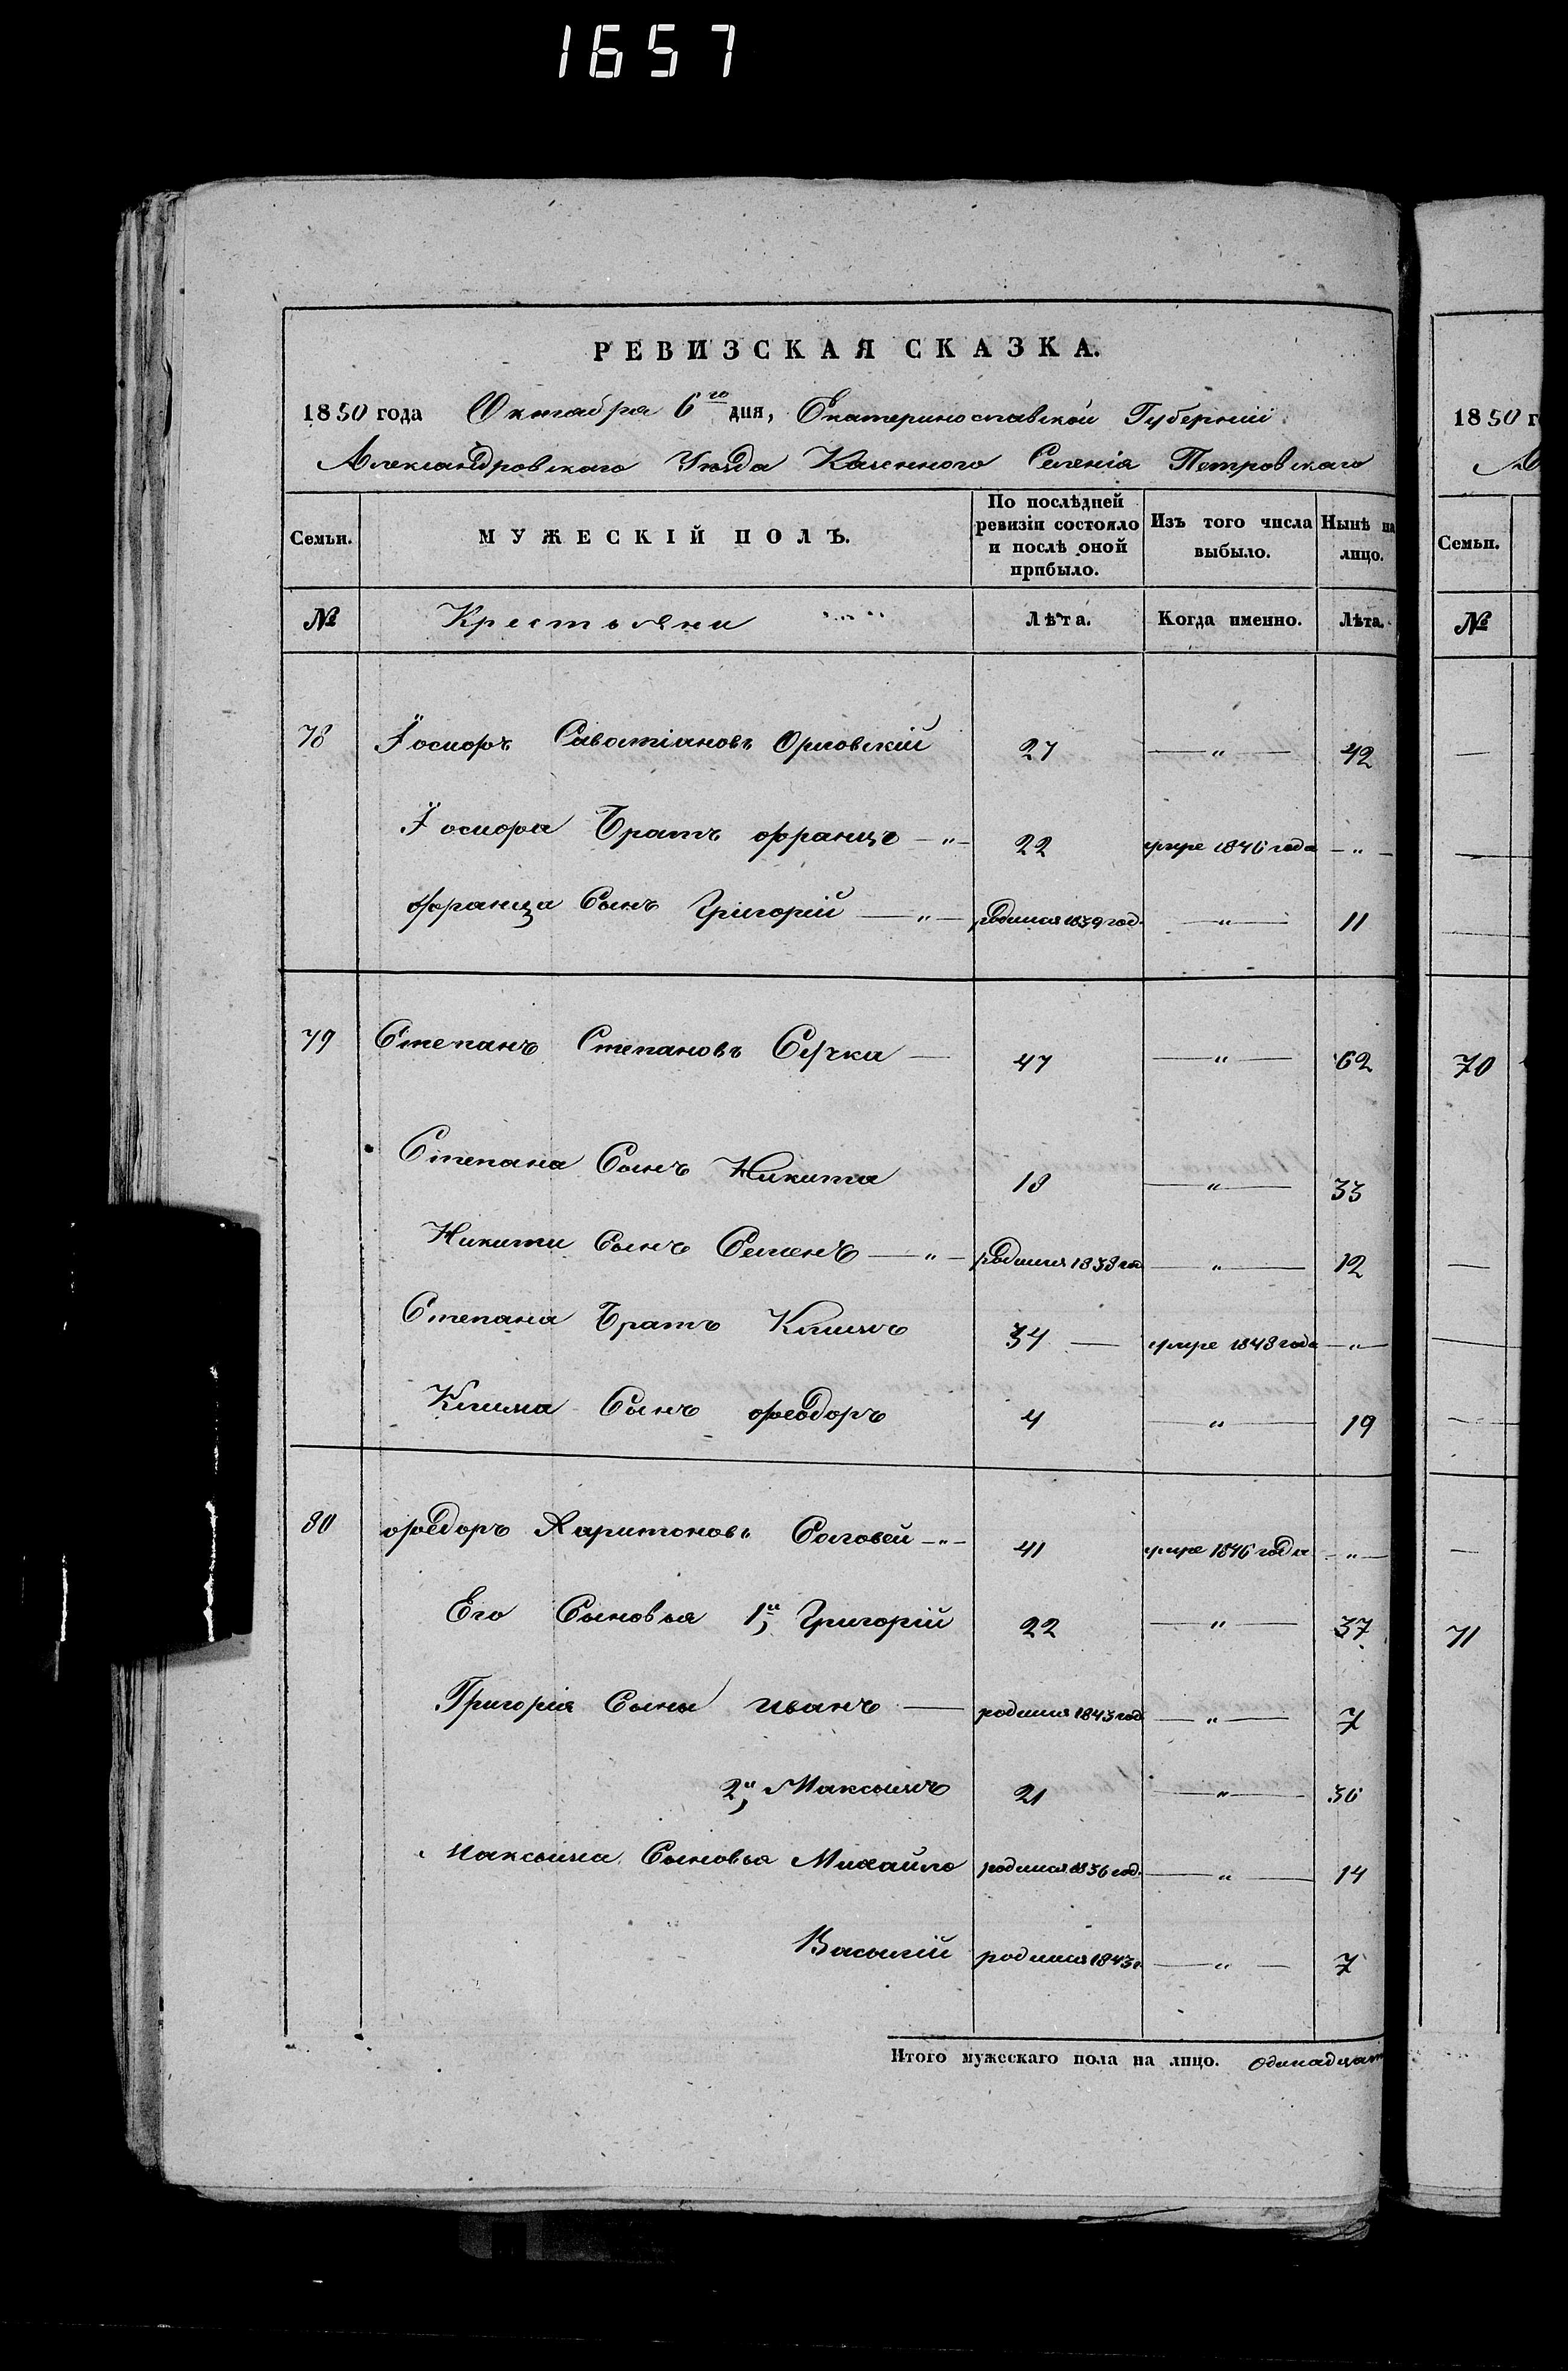 1657
РЕВИЗСКАЯ СКАЗКА.
1850 года Октября 6го дня, Екатеринославской Губерніи
Александровскаго Уезда Казенного Селенія Петровскаго
Семьи. МУЖЕСКІЙ ПОЛЪ. По послѣдней ревизіи состояло и послѣ оной прибыло. Изъ того числа выбыло. Нынѣ на лицо.
№ Крестьяни Лѣта. Когда именно. Лѣта.
78 Савостіановъ Орловскій 27 — " — 42
Братъ Францъ — " — 22 умре 1846 года — " —
Франца Сынъ Григорій — " — родился 1839 год. — " — 11
79 Степанъ Степановъ Сучка — 47 — " — 62
Степана Сынъ Никита 18 — " — 33
Никити Сынъ Семенъ — " — родился 1838 го — " — 12
Степана Братъ Климъ 34 — умре 1848 года — " —
Клима Сынъ Феодоръ 4 — " — 19
80 Федоръ Харитоновъ Соловей — " — 41 умре 1846 года — " —
Его Сыновья 1й, Григорій 22 — " — 37
Григорія Сыны Иванъ — родился 1843 год — " — 7
2й, Максымъ 21 — " — 36
Максыма Сыновья Михайло родился 1836 год. — " — 14
Василій родился 1843 г. — " — 7
Итого мужескаго пола на лицо. Одинадцат
1850 г
Семьи.
№
70
71